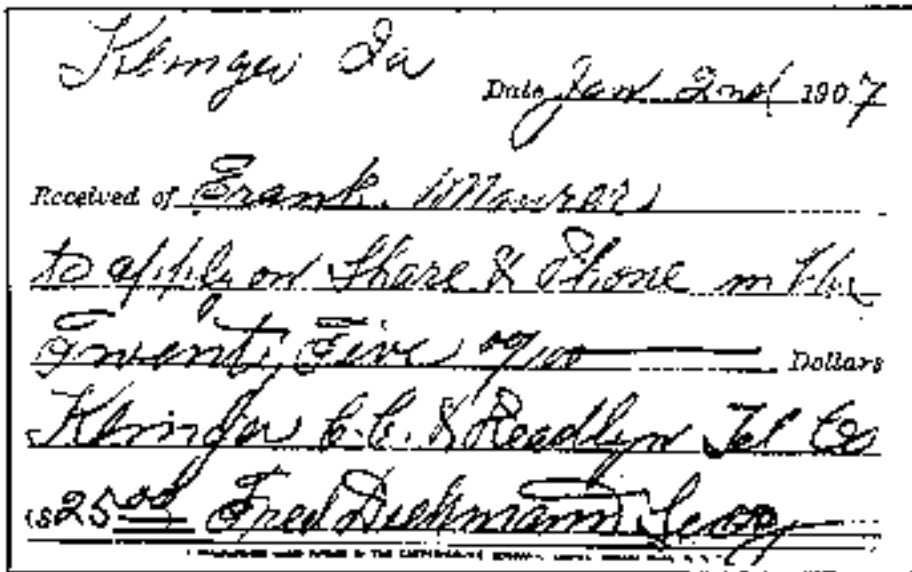 Klinger Ia
Date Jan 2nd 1907
Received of Frank Maurer
to apply on Share & Phone in the
Twenty Five 00/100 Dollars
Klinger C.C. & Readlyn Tel Co
($25.00 Fred Diekmann Secy